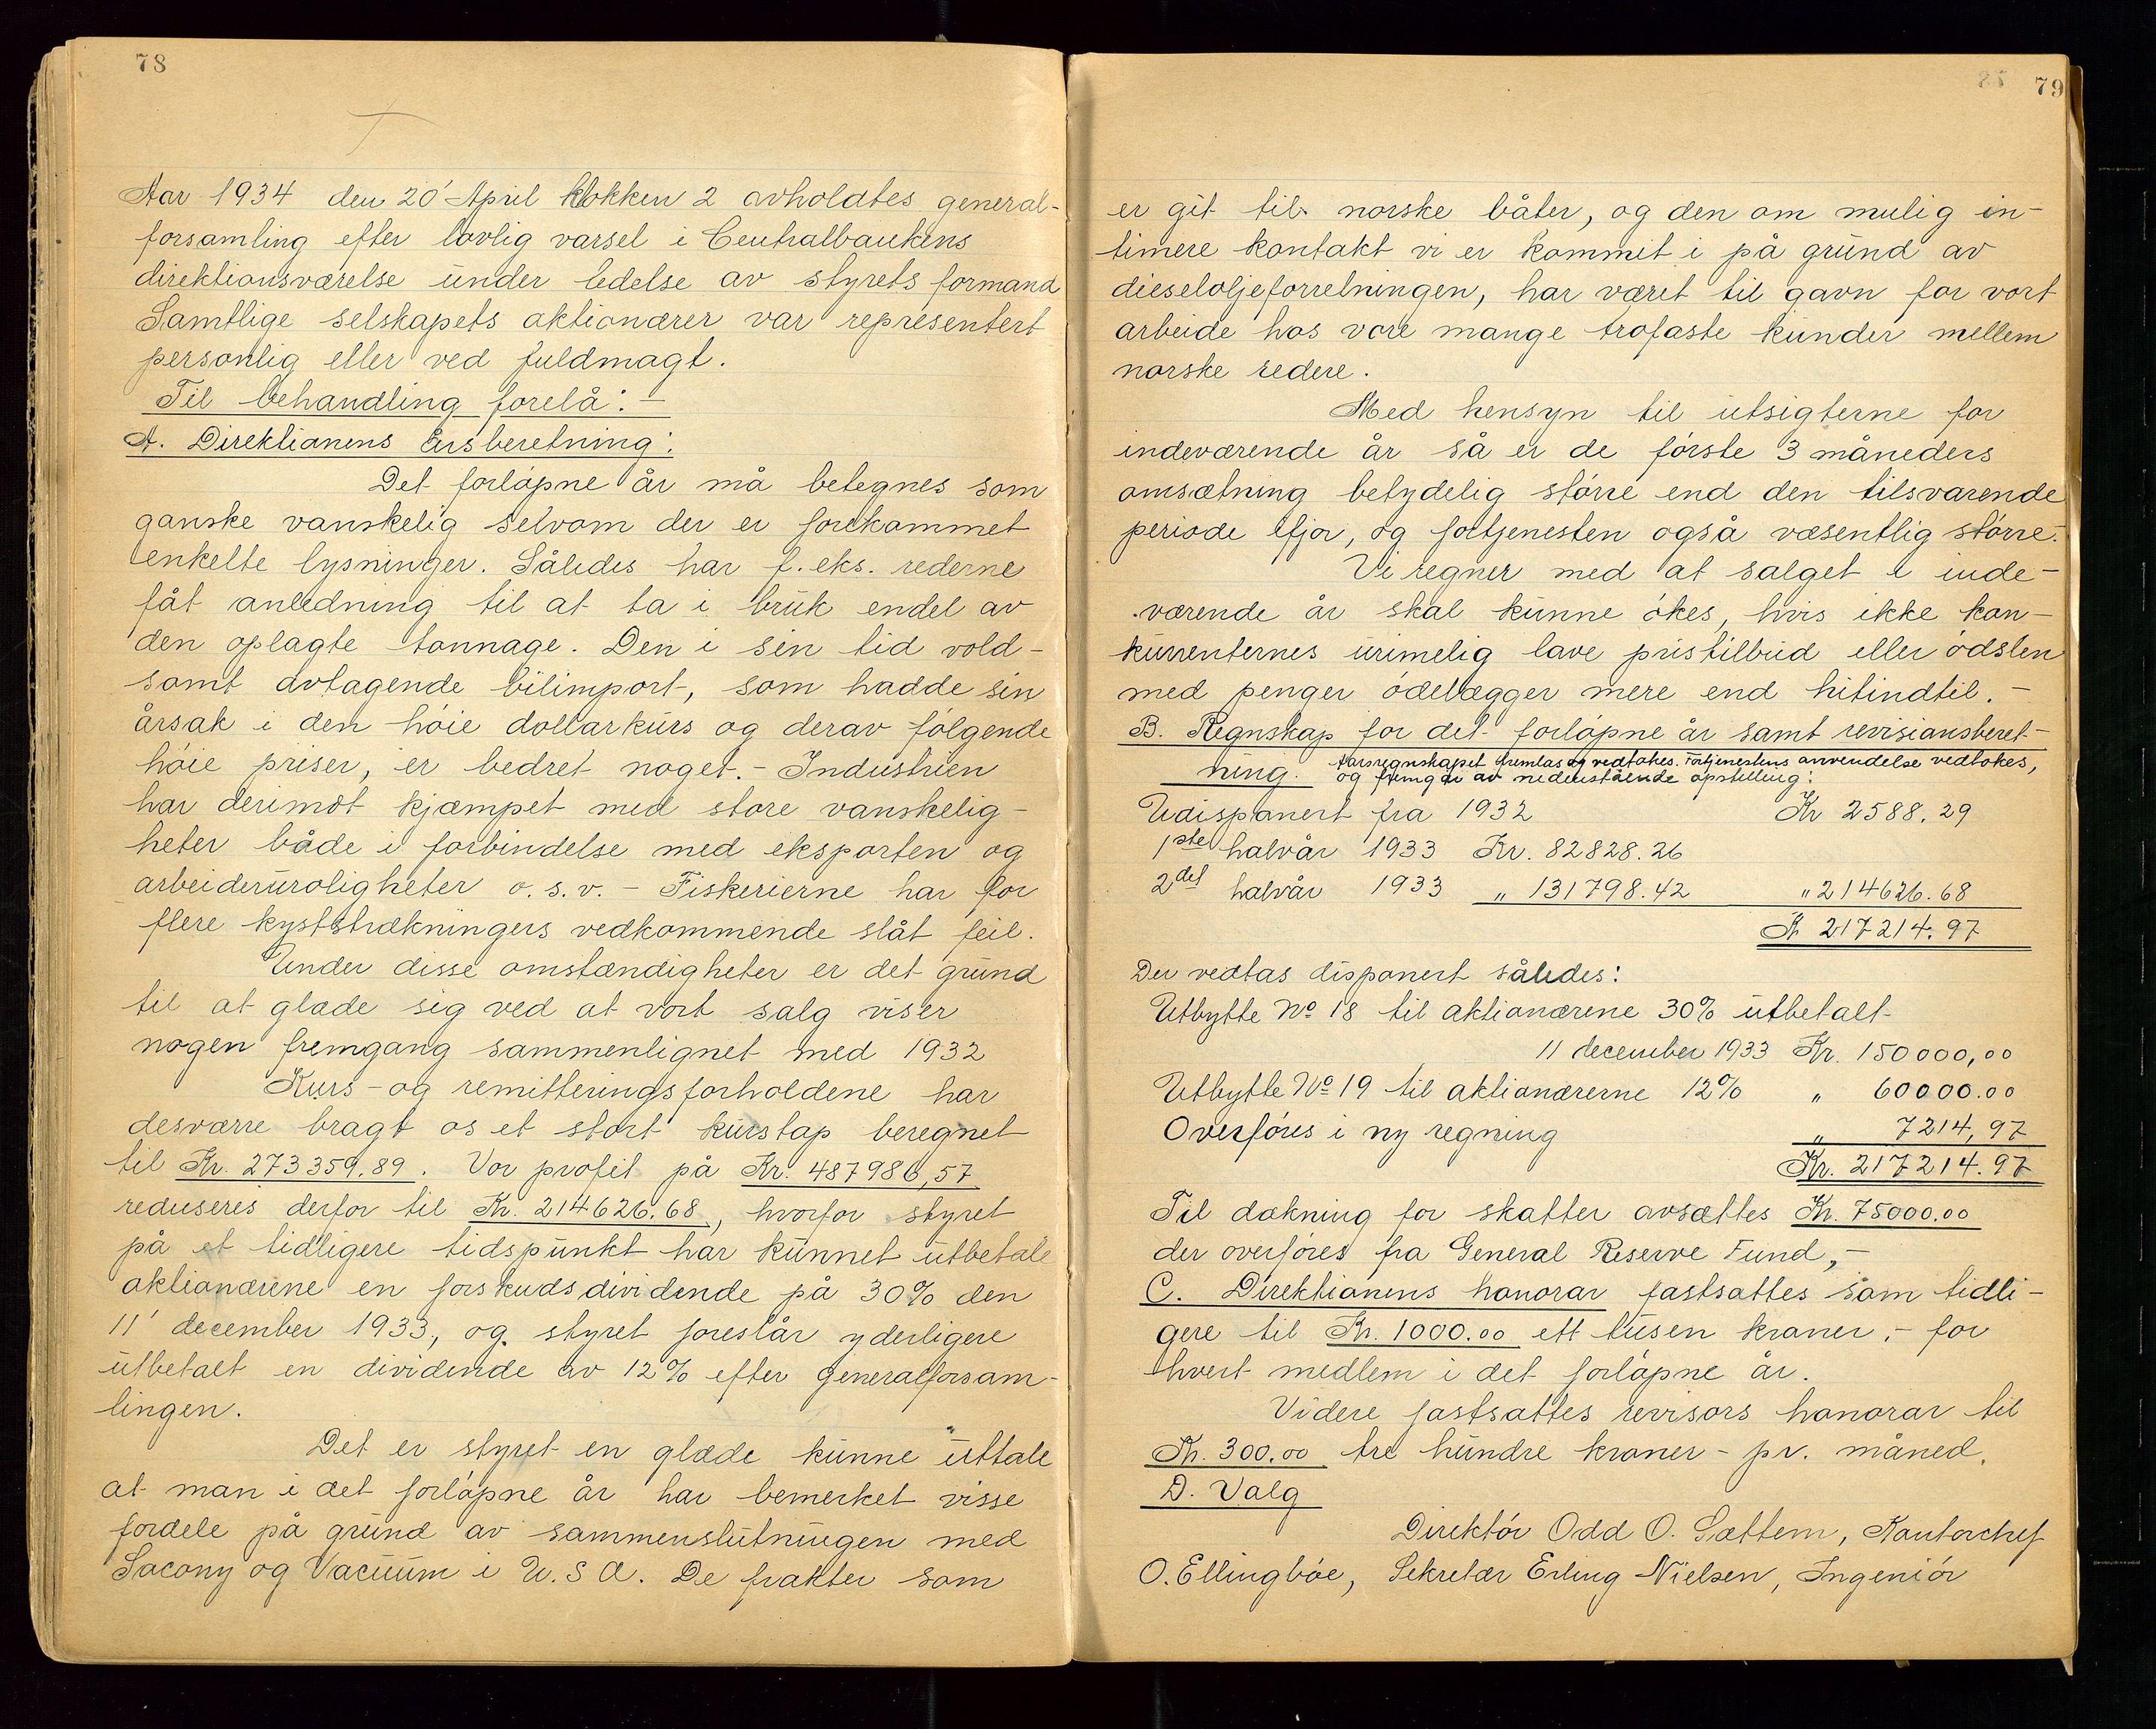 78
Aar 1934 den 20' April klokken 2 avholdtes general-
forsamling efter lovlig varsel i Centralbankens
direktionsværelse under ledelse av styrets formand
Samtlige selskapets aktionærer var representert
personlig eller ved fuldmagt.
Til behandling forelå: -
A. Direktionens årsberetning:
Det forløpne år må betegnes som
ganske vanskelig selvom der er forekommet
enkelte lysninger. Således har f. eks. rederne
fåt anledning til at ta i bruk endel av
den oplagte tonnage. Den i sin tid vold-
somt avtagende bilimport, som hadde sin
årsak i den høie dollarkurs og derav følgende
høie priser, er bedret noget. - Industrien
har derimot kjæmpet med store vanskelig-
heter både i forbindelse med eksporten og
arbeideruroligheter o. s. v. - Fiskerierne har for
flere kyststrækningers vedkommende slåt feil.
Under disse omstændigheter er det grund
til at glæde sig ved at vort salg viser
nogen fremgang sammenlignet med 1932
Kurs- og remitteringsforholdene har
desværre bragt os et stort kurstap beregnet
til Kr. 273359.89. Vor profit på Kr. 487986,57
reduseres derfor til Kr. 214626.68, hvorfor styret
på et tidligere tidspunkt har kunnet utbetale
aktionærene en forskudsdividende på 30% den
11' december 1933, og styret foreslår yderligere
utbetalt en dividende av 12% efter generalforsam-
lingen.
Det er styret en glæde kunne uttale
at man i det forløpne år har bemerket visse
fordele på grund av sammenslutningen med
Socony og Vacuum i U.S.A. De frakter som
79
er git til norske båter, og den om mulig in-
timere kontakt vi er kommet i på grund av
dieseloljeforretningen, har været til gavn for vort
arbeide hos vore mange trofaste kunder mellem
norske redere.
Med hensyn til utsigterne for
indeværende år så er de første 3 måneders
omsætning betydelig større end den tilsvarende
periode ifjor, og fortjenesten også væsentlig større.
Vi regner med at salget i inde-
værende år skal kunne økes, hvis ikke kon-
kurrenternes urimelig lave pristilbud eller ødslen
med penger ødelægger mere end hitindtil. -
B. Regnskap for det forløpne år samt revisionsberet-
ning. Aarsregnskapet fremlas og vedtokes. Fortjenestens anvendelse vedtokes,
og fremgår av nedenstående opstilling:
Udisponert fra 1932 Kr 2588.29
1ste halvår 1933 Kr. 82828.26
2det halvår 1933 " 131798.42 " 214626.68
Kr 217214.97
Der vedtas disponert således:
Utbytte No 18 til aktionærene 30% utbetalt
11 december 1933 Kr. 150000,00
Utbytte No 19 til aktionærerne 12% " 60000.00
Overføres i ny regning " 7214,97
Kr. 217214.97
Til dækning for skatter avsættes Kr. 75000.00
der overføres fra General Reserve Fund, -
C. Direktionens honorar fastsattes som tidli-
gere til Kr. 1000.00 ett tusen kroner, - for
hvert medlem i det forløpne år.
Videre fastsattes revisors honorar til
Kr. 300.00 tre hundre kroner - pr. måned.
D. Valg
Direktør Odd O. Sættem, Kontorchef
O. Ellingbøe, Sekretær Erling Nielsen, Ingeniør